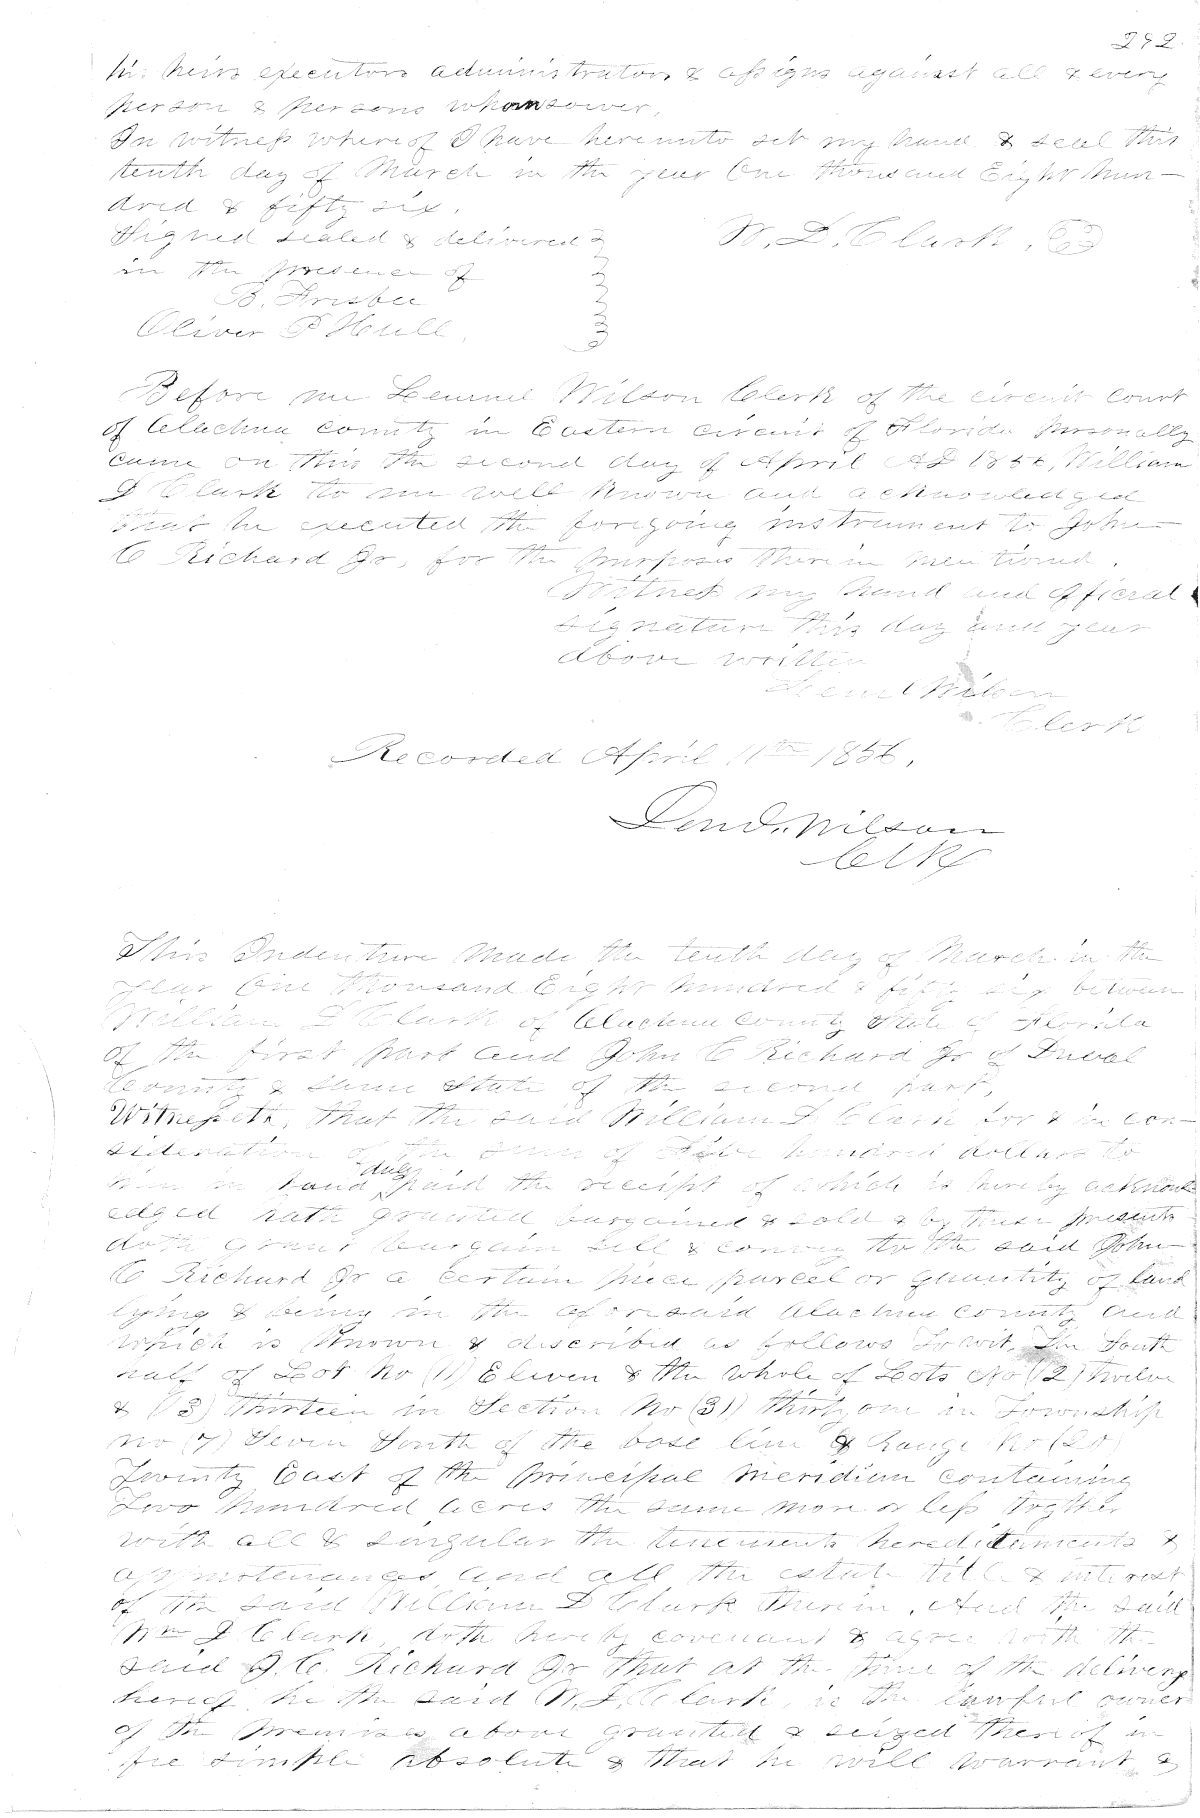 292
his heirs executors administrators & assigns against all & every
person & persons whomsoever.
In witness whereof I have hereunto set my hand & seal this
tenth day of March in the year One thousand Eight hun-
dred & fifty six.
Signed sealed & delivered
W. D. Clark.
in the presence of
B. Frisbee
Oliver P Hull.
Before me Lemuel Wilson Clerk of the circuit court
of Alachua county in Eastern circuit of Florida personally
came on this the second day of April AD 1856, William
D Clark to me well known and acknowledged
that he executed the foregoing instrument to John
C Richard Jr, for the purposes therein mentioned.
Witness my hand and official
signature this day and year
above written
Lemuel Wilson
Clerk
Recorded April 11th 1856.
Wilson
Clk
This Indenture Made the tenth day of March in the
year One thousand Eight hundred & fifty six between
William D Clark of Alachua County State of Florida
of the first part and John C Richard Jr of Duval
County & same State of the second part,
Witnesseth, that the said William D Clark for & in con-
sideration of the sum of Five hundred dollars to
him in hand duly paid the receipt of which is hereby acknowl
edged hath granted bargained & sold & by these presents
doth grant bargain sell & convey to the said John
C Richard Jr a certain piece parcel or quantity of land
lying & being in the aforesaid Alachua County and
which is known & described as follows Towit, The South
half of Lot No (11) Eleven & the whole of Lots No (12) twelve
& (13) thirteen in Section No (31) thirty one in Township
no (7) Seven South of the base line & Range No (20)
Twenty East of the principal meridian containing
Two hundred acres the same more or less together
with all & singular the tenements hereditaments &
appurtenances and all the estate title & interest
of the said William D Clark therein. And the said
Wm D Clark, doth hereby covenant & agree with the
said J. C. Richard Jr that at the time of the delivery
hereof he the said W. D. Clark, is the lawful owner
of the premises above granted & seized thereof in
fee simple absolute & that he will warrant &